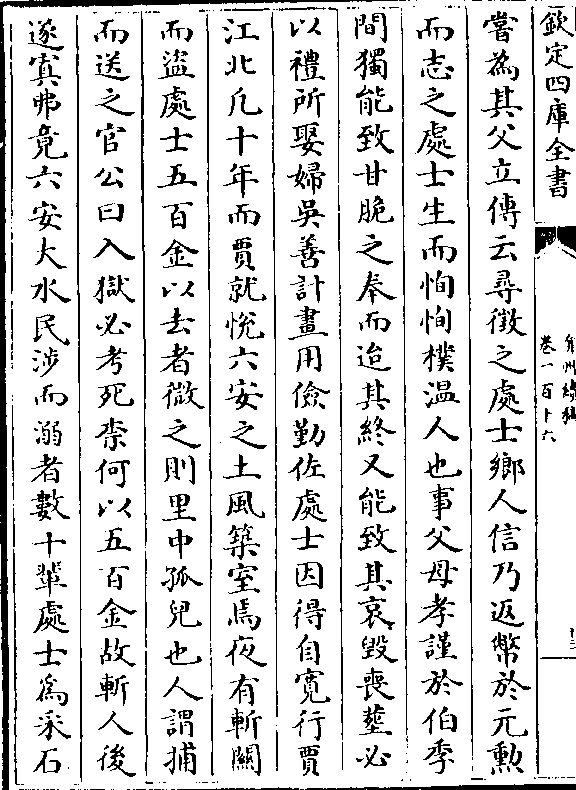 欽定四庫全書
嘗為其父立傳云尋徵之處士鄉人信乃返幣於元勲
而志之處士生而恂恂樸温人也事父母孝謹於伯季
間獨能致甘脆之奉而迨其終又能致其哀毀喪塟必
以禮所娶婦吳善計畫用儉勤佐處士因得自寛行賈
江北凡十年而賈就悅六安之土風築室焉夜有斬關
而盜處士五百金以去者微之則里中孤兒也人謂捕
而送之官公曰入獄必考死柰何以五百金故斬人後
遂寘弗竟六安大水民涉而溺者數十輩處士為采石
弇州續稿
卷一百十六